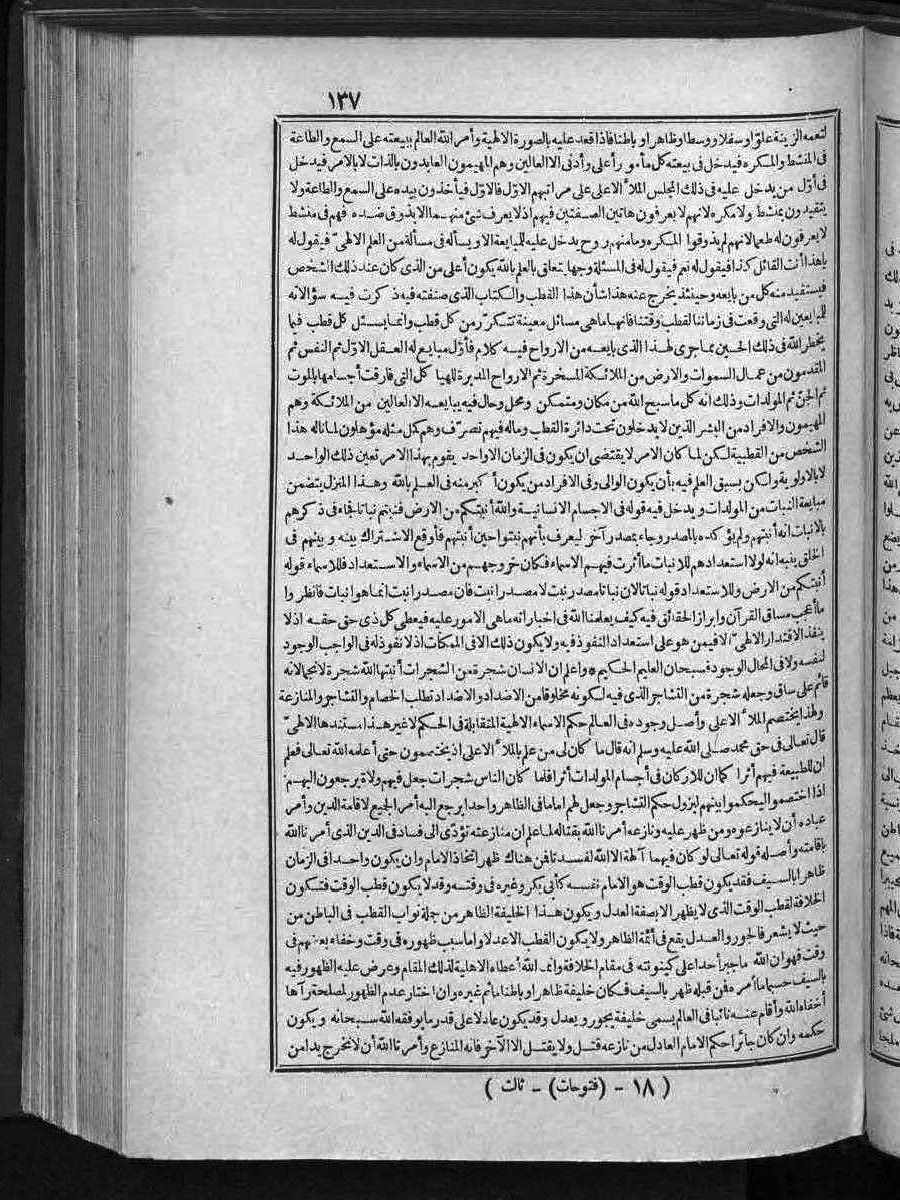 ١٣٧
لتعمه الزينة علوا وسفلا ووسطا وظاهرا وباطنا فاذا قعد عليه بالصورة الالهية وأمر الله العالم ببيعته على السمع والطاعة
فى المنشط والمكره فيدخل فى بيعته كل مأمور أعلى وأدنى الا العالين وهم المهيمون العابدون بالذات لا بالامر فيدخل
فى أول من يدخل عليه فى ذلك المجلس الملأ الاعلى على مراتبهم الاول فالاول فيأخذون بيده على السمع والطاعة ولا
يتقيدون بمنشط ولا مكره لانهم لا يعرفون هاتين الصفتين فيهم اذ لا يعرف شئ منهما الا بذوق ضده فهم فى منشط
لا يعرفون له طعما لانهم لم يذوقوا المكره وما منهم روح يدخل عليه للمبايعة الا ويسأله فى مسألة من العلم الالهى فيقول له
يا هذا أنت القائل كذا فيقول له نعم فيقول له فى المسئلة وجها يتعلق بالعلم بالله يكون أعلى من الذى كان عند ذلك الشخص
فيستفيد منه كل من بايعه وحينئذ يخرج عنه هذا شأن هذا القطب والكتاب الذى صنفته فيه ذكرت فيه سؤالاته
للمبايعين له التى وقعت فى زماننا لقطب وقتنا فانها ما هى مسائل معينة تتكرر من كل قطب وانما يسئل كل قطب فيما
يخطر الله فى ذلك الحين مما جرى لهذا الذى بايعه من الارواح فيه كلام فأول مبايع له العقل الاول ثم النفس ثم
المقدمون من عمال السموات والارض من الملائكة المسخرة ثم الارواح المدبرة للهياكل التى فارقت أجسامها بالموت
ثم الجن ثم المولدات وذلك انه كل ما سبح الله من مكان ومتمكن ومحل وحال فيه يبايعه الا العالين من الملائكة وهم
المهيمون والافراد من البشر الذين لا يدخلون تحت دائرة القطب وما له فيهم تصرف وهم كمل مثله مؤهلون لما ناله هذا
الشخص من القطبية لكن لما كان الامر لا يقتضى ان يكون فى الزمان الا واحد يقوم بهذا الامر تعين ذلك الواحد
لا بالاولوية ولكن بسبق العلم فيه بأن يكون الوالى وفى الافراد من يكون أكبر منه فى العلم بالله وهذا المنزل يتضمن
مبايعة النبات من المولدات ويدخل فيه قوله فى الاجسام الانسانية والله أنبتكم من الارض فنبتم نباتا فجاء فى ذكرهم
بالانبات انه أنبتهم ولم يؤكده بالمصدر وجاء بمصدر آخر ليعرف بأنهم نبتوا حين أنبتهم فأوقع الاشتراك بينه وبينهم فى
الخلق ينبه انه لولا استعدادهم للانبات ما أثرت فيهم الاسماء فكان خروجهم من الاسماء والاستعداد فللاسماء قوله
أنبتكم من الارض وللاستعداد قوله نباتا لان نباتا مصدر نبت لا مصدر انبت فان مصدر انبت انما هو انبات فانظروا
ما أعجب مساق القرآن وابراز الحقائق فيه كيف يعلمنا الله فى اخباراته ما هى الامور عليه فيعطى كل ذى حق حقه اذ لا
ينفذ الاقتدار الالهى الا فيمن هو على استعداد النفوذ فيه ولا يكون ذلك الا فى الممكنات اذ لا نفوذ له فى الواجب الوجود
لنفسه ولا فى المحال الوجود فسبحان العليم الحكيم واعلم ان الانسان شجرة من الشجرات أنبتها الله شجرة لا نجما لانه
قائم على ساق وجعله شجرة من التشاجر الذى فيه لكونه مخلوقا من الاضداد والاضداد تطلب الخصام والتشاجر والمنازعة
ولهذا يختصم الملأ الاعلى وأصل وجوده فى العالم حكم الاسماء الالهية المتقابلة فى الحكم لا غير هذا مستندها الالهى
قال تعالى فى حق محمد صلى الله عليه وسلم انه قال ما كان لى من علم بالملأ الاعلى اذ يختصمون حتى أعلمه الله تعالى فعلم
ان للطبيعة فيهم أثرا كما ان للاركان فى أجسام المولدات أثرا فلما كان الناس شجرات جعل فيهم ولاة يرجعون اليهم
اذا اختصموا ليحكموا بينهم ليزول حكم التشاجر وجعل لهم اماما فى الظاهر واحدا يرجع اليه أمر الجميع لاقامة الدين وأمر
عباده أن لا ينازعوه ومن ظهر عليه ونازعه أمرنا الله بقتاله لما علم ان منازعته تؤدى الى فساد فى الدين الذى أمرنا الله
باقامته وأصله قوله تعالى لو كان فيهما آلهة الا الله لفسدتا فمن هناك ظهر اتخاذ الامام وان يكون واحدا فى الزمان
ظاهرا بالسيف فقد يكون قطب الوقت هو الامام نفسه كأبى بكر وغيره فى وقته وقد لا يكون قطب الوقت فتكون
الخلافة لقطب الوقت الذى لا يظهر الا بصفة العدل ويكون هذا الخليفة الظاهر من جملة نواب القطب فى الباطن من
حيث لا يشعر فالجور والعدل يقع فى أئمة الظاهر ولا يكون القطب الا عدلا واما سبب ظهوره فى وقت وخفاء بعضهم فى
وقت فهو ان الله ما جبر أحدا على كينونته فى مقام الخلافة وانما الله أعطاه الاهلية لذلك المقام وعرض عليه الظهور فيه
بالسيف حسبما أمره فمن قبله ظهر بالسيف فكان خليفة ظاهرا وباطنا ما ثم غيره وان اختار عدم الظهور لمصلحة رآها
أخفاه الله وأقام عنه نائبا فى العالم يسمى خليفة يجور ويعدل وقد يكون عادلا على قدر ما يوفقه الله سبحانه ويكون
حكمه وان كان جائرا حكم الامام العادل من نازعه قتل ولا يقتل الا الآخر فانه المنازع وأمرنا الله أن لا نخرج يدا من
( ١٨ - (فتوحات) - ثالث )